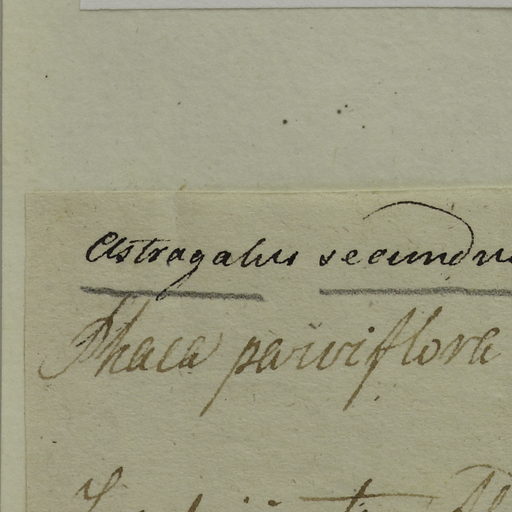 Astragalus secundus
Phaca parviflora